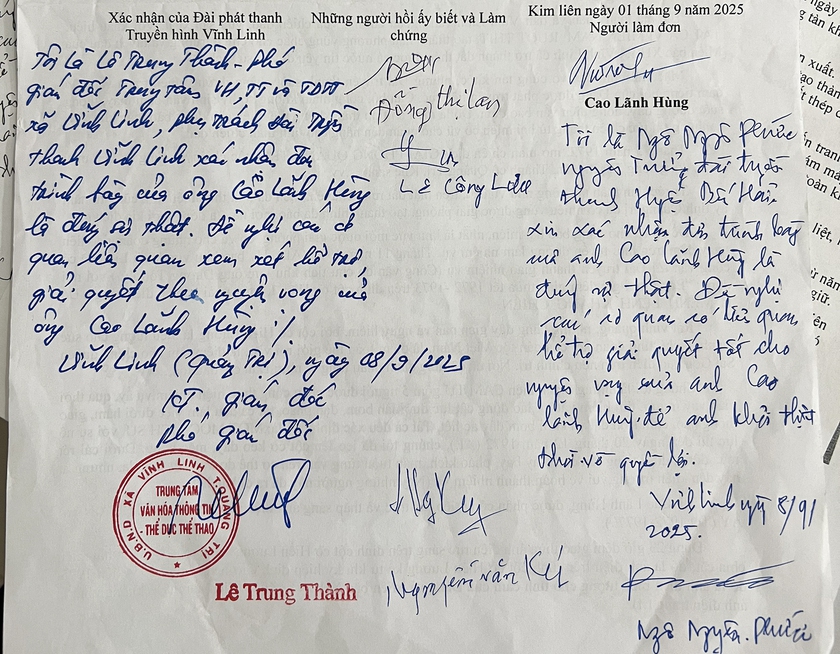 Xác nhận của Đài phát thanh
Truyền hình Vĩnh Linh
Tôi là Lê Trung Thành - Phó
giám đốc Trung tâm VH, TT và TDTT
xã Vĩnh Linh, phụ trách Đài Truyền
thanh Vĩnh Linh xác nhận đơn
trình bày của ông Cao Lãnh Hùng
là đúng sự thật. Đề nghị các cơ
quan liên quan xem xét hỗ trợ,
giải quyết theo nguyện vọng của
ông Cao Lãnh Hùng ./.
Vĩnh Linh (Quảng Trị), ngày 08/9/2025
KT. giám đốc
phó giám đốc
U.B.N.D XÃ VĨNH LINH T.QUẢNG TRỊ
TRUNG TÂM
VĂN HÓA THÔNG TIN
THỂ DỤC THỂ THAO
Lê Trung Thành
Những người hồi ấy biết và Làm
chứng
Đồng thị lan
Lê Công
Nguyễn Văn
Kim liên ngày 01 tháng 9 năm 2025
Người làm đơn
Cao Lãnh Hùng
Tôi là Ngô Nguyên Phước
nguyên Trưởng đài truyền
thanh Huyện Bến Hải
xin xác nhận đơn trình bày
mà anh Cao Lãnh Hùng là
đúng sự thật. Đề nghị
các cơ quan có liên quan
hỗ trợ giải quyết tốt cho
nguyện vọng của anh Cao
Lãnh Hùng để anh khỏi thiệt
thòi về quyền lợi.
Vĩnh Linh ngày 8/9/
2025.
Ngô Nguyên Phước